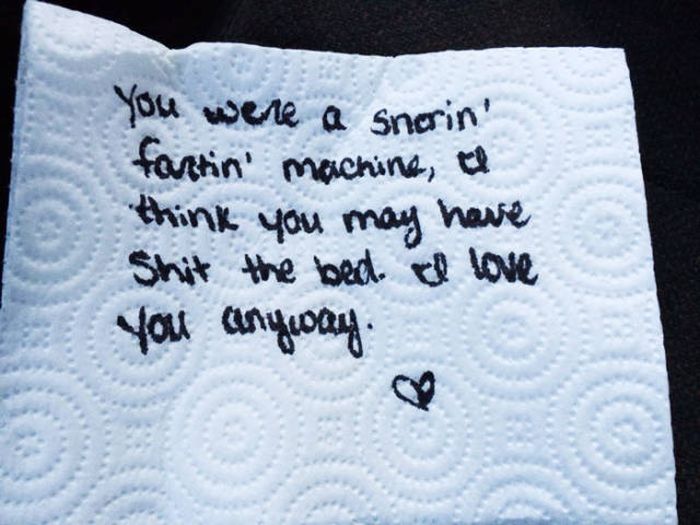 You were a snorin'
fartin' machine, I
think you may have
shit the bed. I love
you anyway.